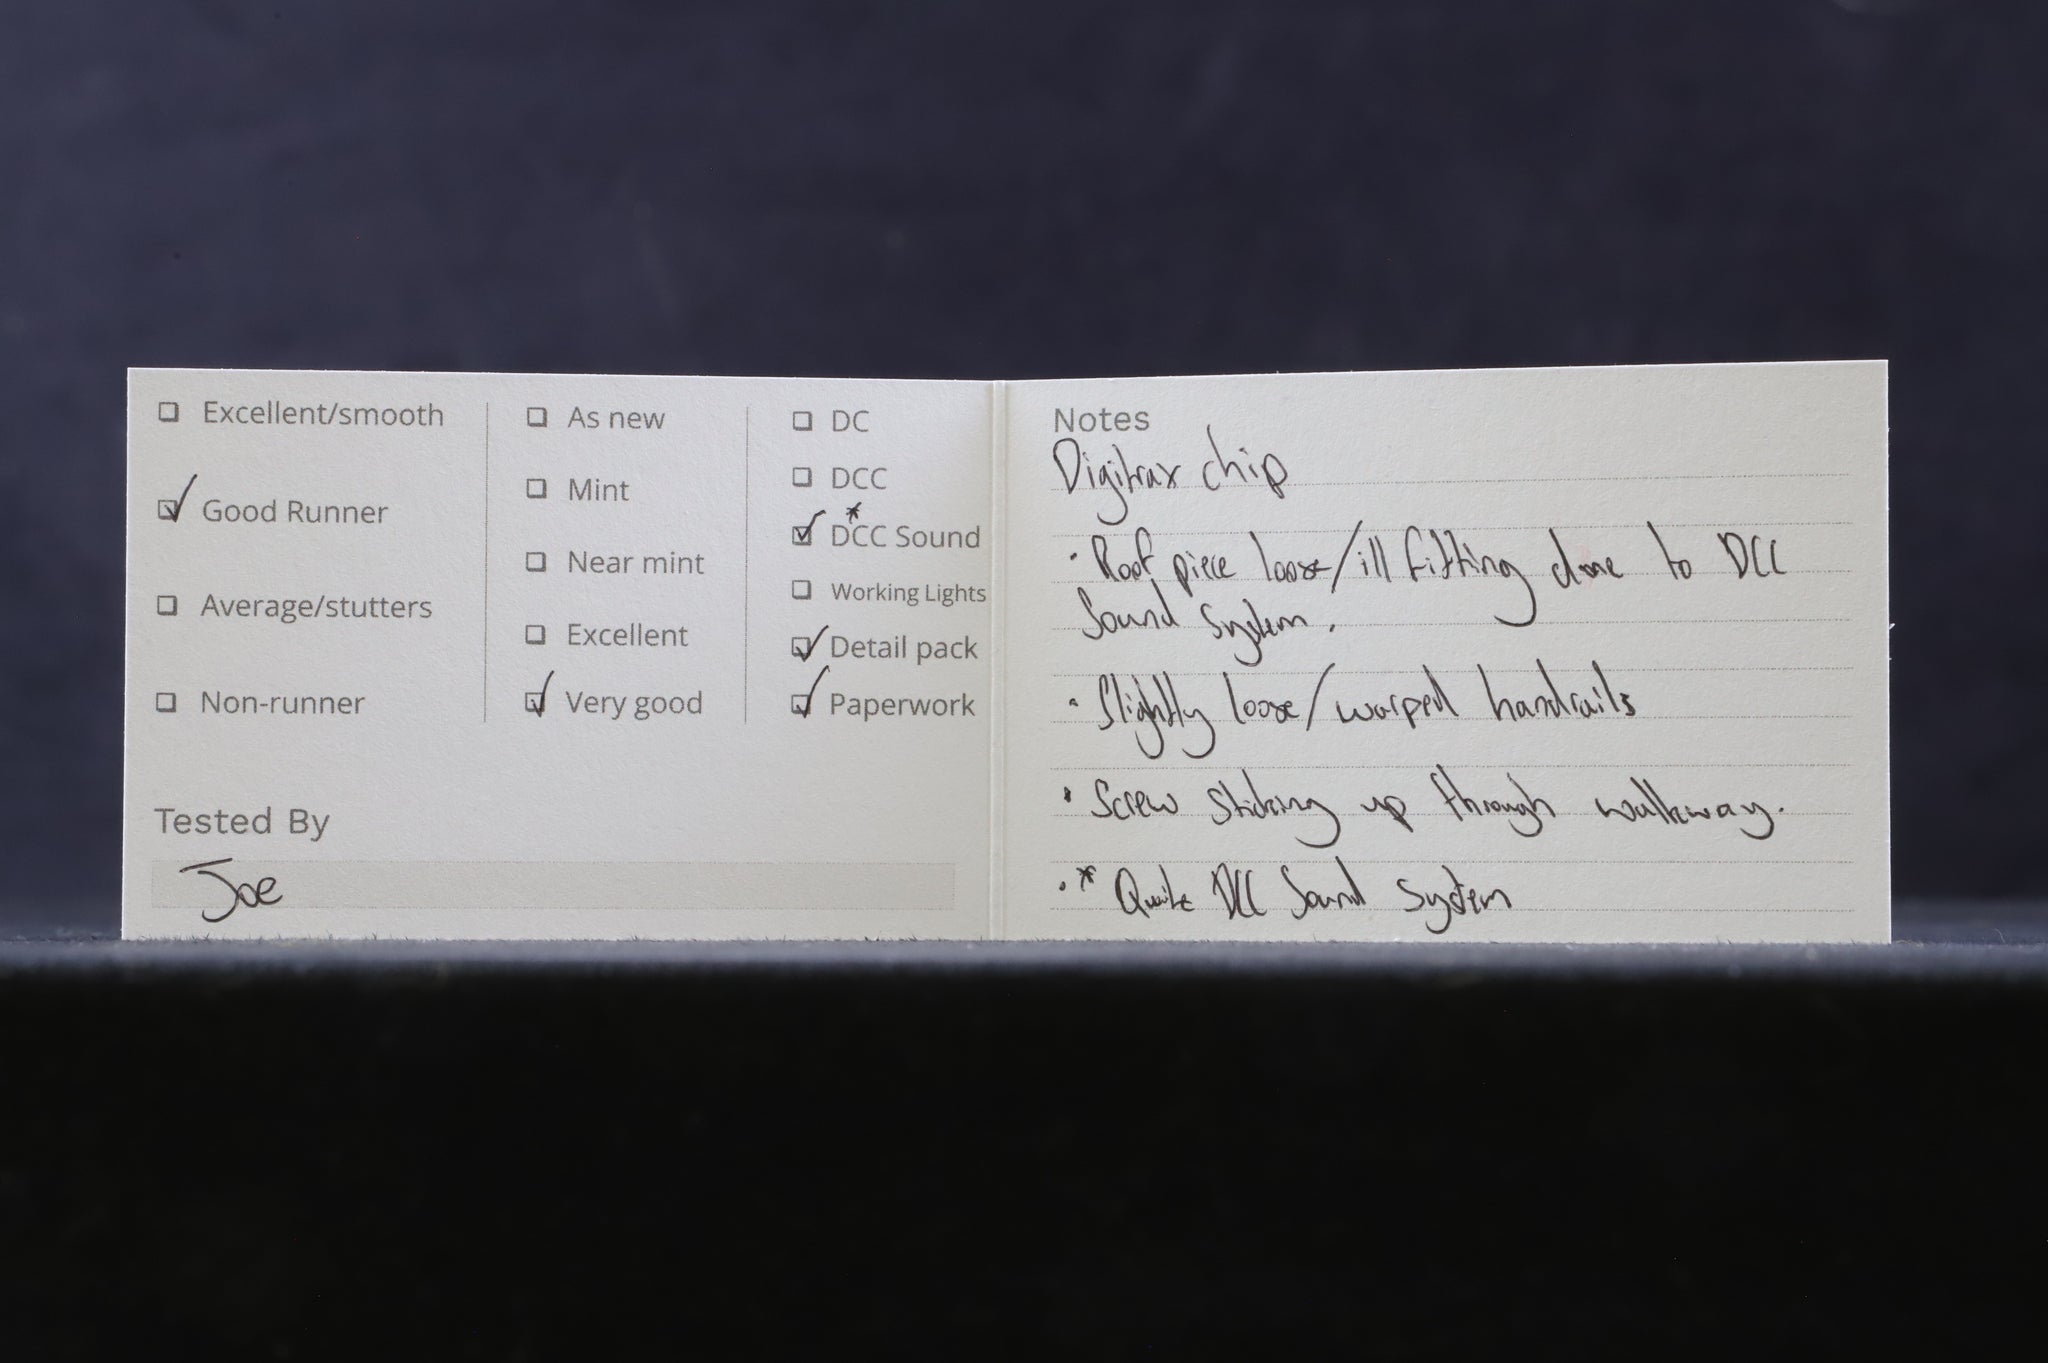 Excellent/smooth
Good Runner
Average/stutters
Non-runner
As new
Mint
Near mint
Excellent
Very good
DC
DCC
*
DCC Sound
Working Lights
Detail pack
Paperwork
Tested By
Joe
Notes
Digitrax chip
· Roof piece loose/ill fitting to DCC
Sound System.
· Slightly loose/warped handrails
· Screw sticking up through walkway.
· * DCC Sound System